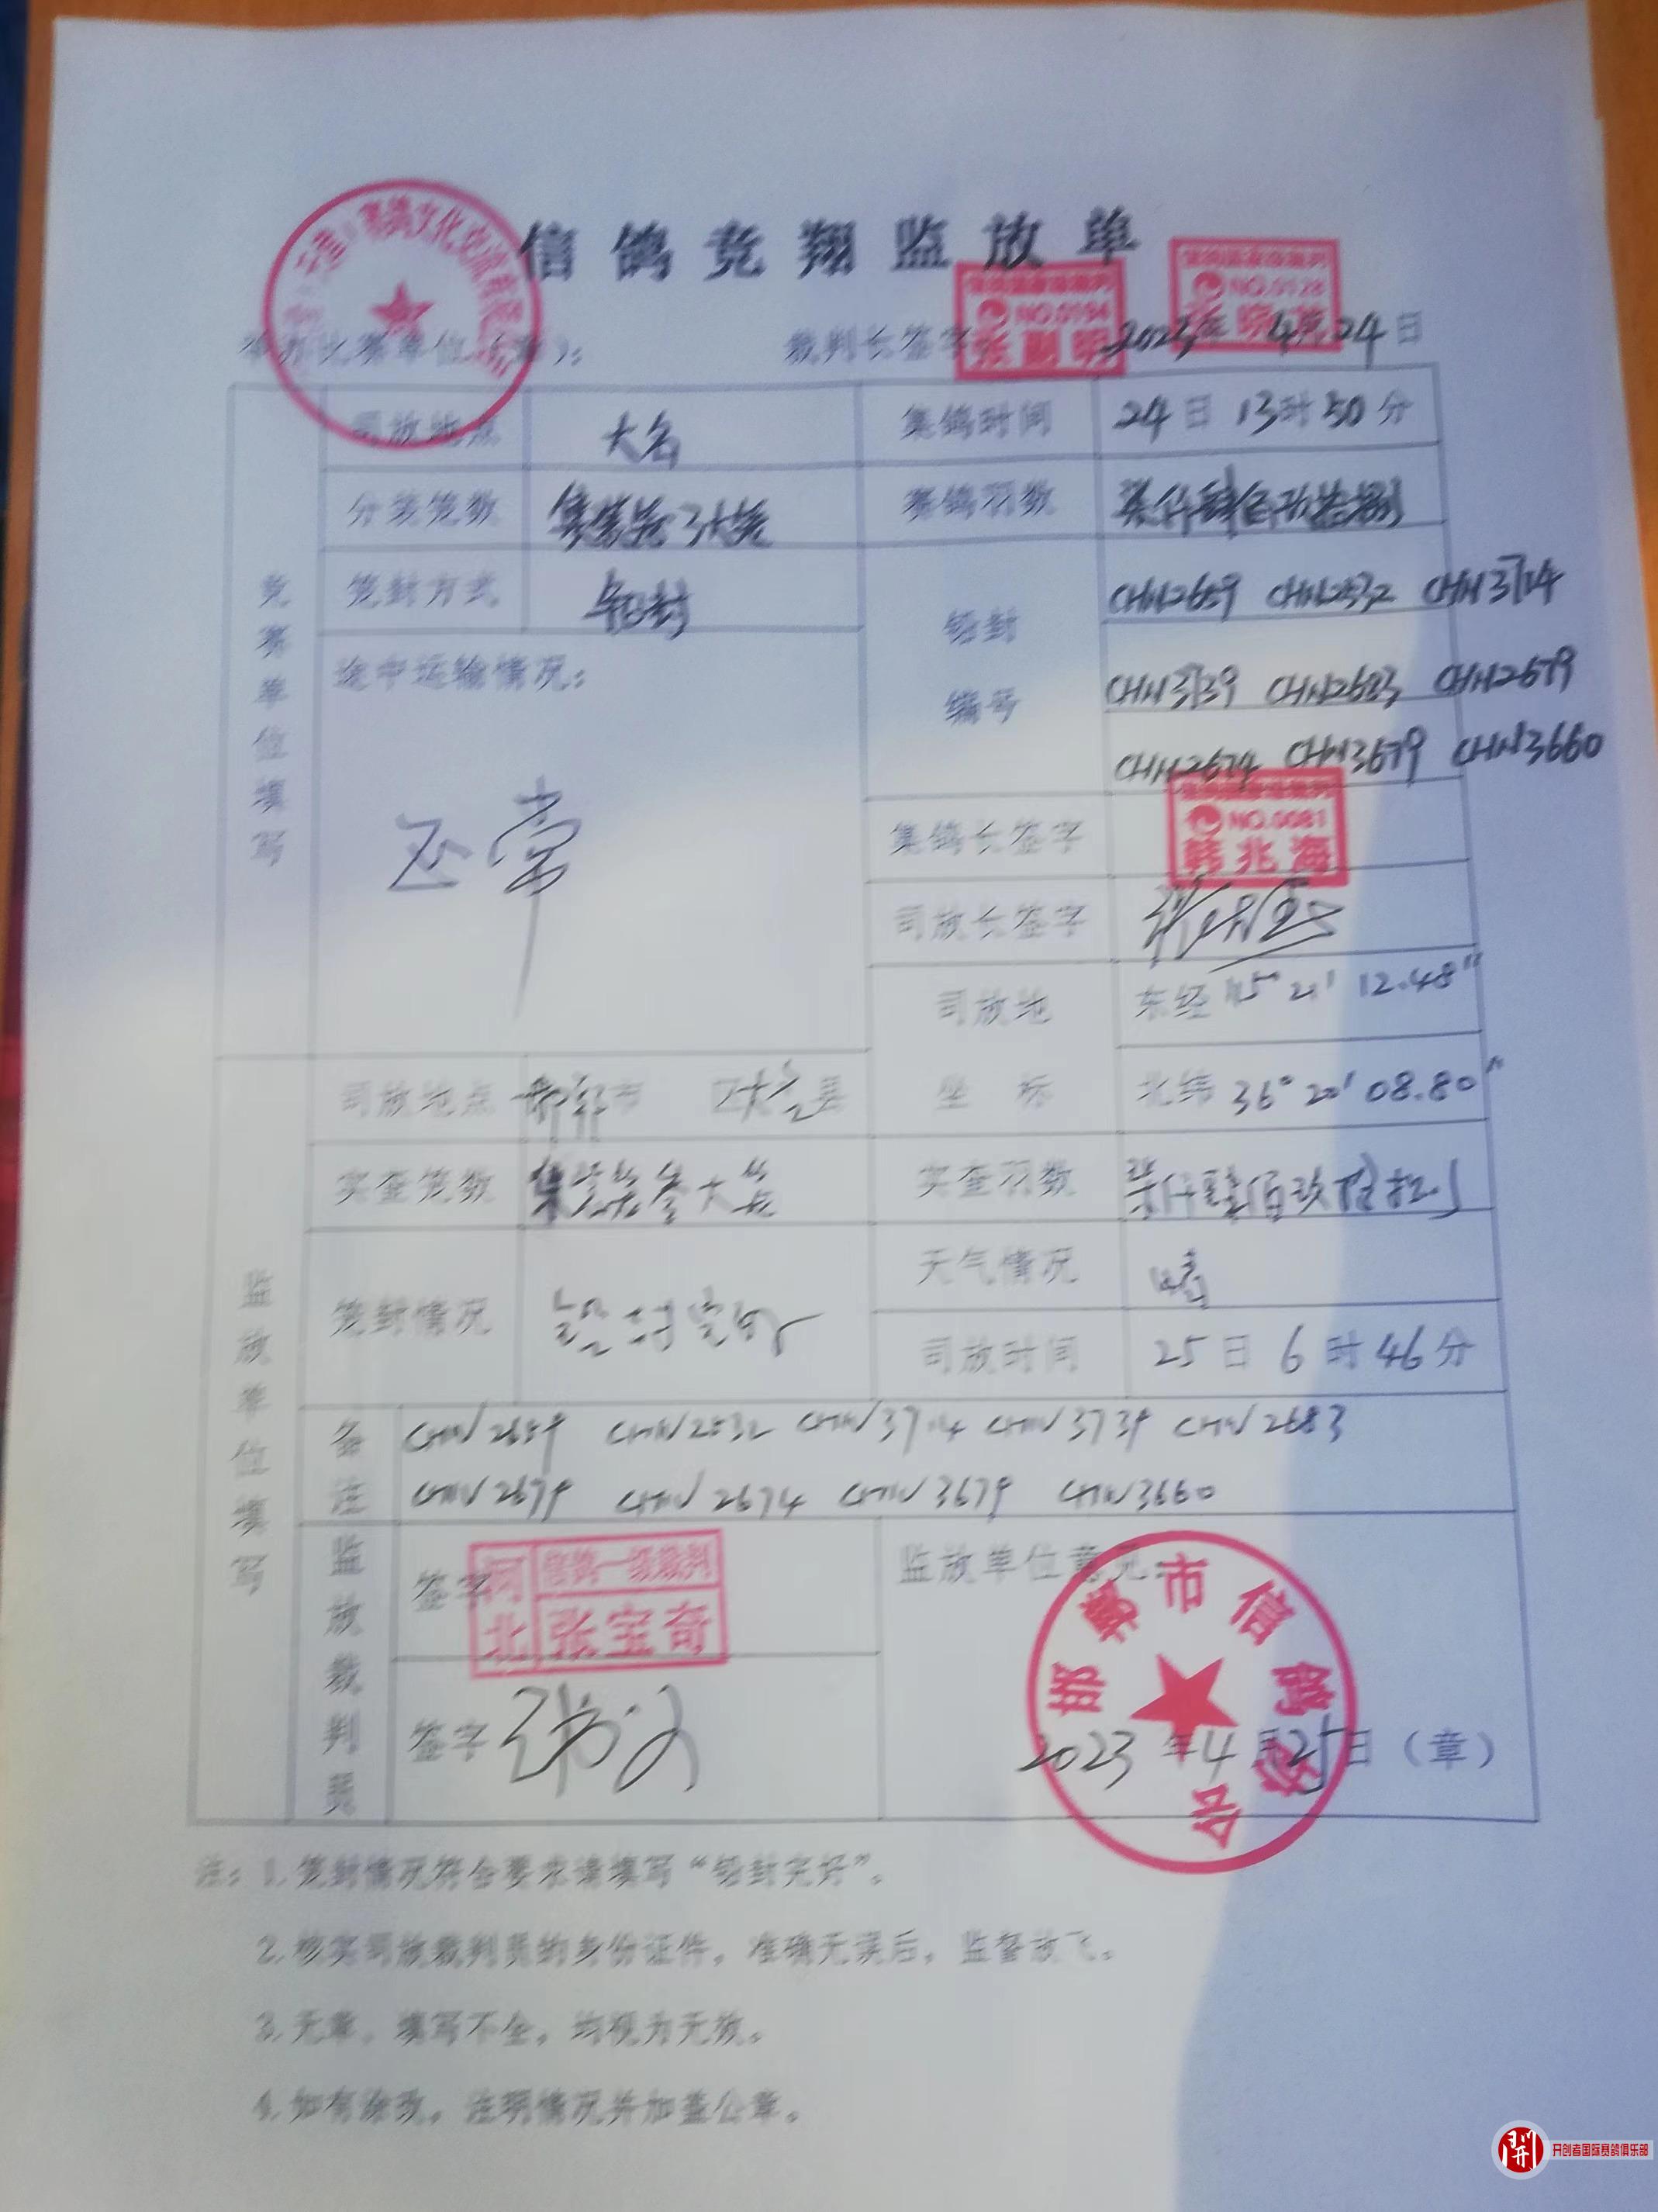 信鸽竞翔监放单
赛鸽文化交流有
举办比赛单位（章）： 裁判长签字 2023年4月24日
NO.0128
司放地点 大名 集鸽时间 24日13时50分
分装笼数 集装笼3大笼 赛鸽羽数
笼封方式 铅封 铅封编号 CHN2659 CHN2532 CHN3714
CHN3739 CHN2683 CHN2679
CHN2674 CHN3679 CHN3660
竞赛单位填写
途中运输情况：
正常
集鸽长签字 NO.0081 韩兆海
司放长签字
司放地坐标 东经115°21'12.48"
北纬36°20'08.80"
监放单位填写
司放地点 邯郸市 区大名县
实查笼数 集装笼叁大笼 实查羽数
笼封情况 铅封完好 天气情况 晴
司放时间 25日6时46分
备注 CHN2659 CHN2532 CHN3714 CHN3739 CHN2683
CHN2679 CHN2674 CHN3679 CHN3660
监放裁判员 签字 河北 信鸽一级裁判 张宝奇
签字
监放单位意见：
邯郸市信鸽协会
2023年4月25日（章）
注：1.笼封情况符合要求请填写“铅封完好”。
2.核实司放裁判员的身份证件，准确无误后，监督放飞。
3.无章，填写不全，均视为无效。
4.如有涂改，注明情况并加盖公章。
开创者国际赛鸽俱乐部